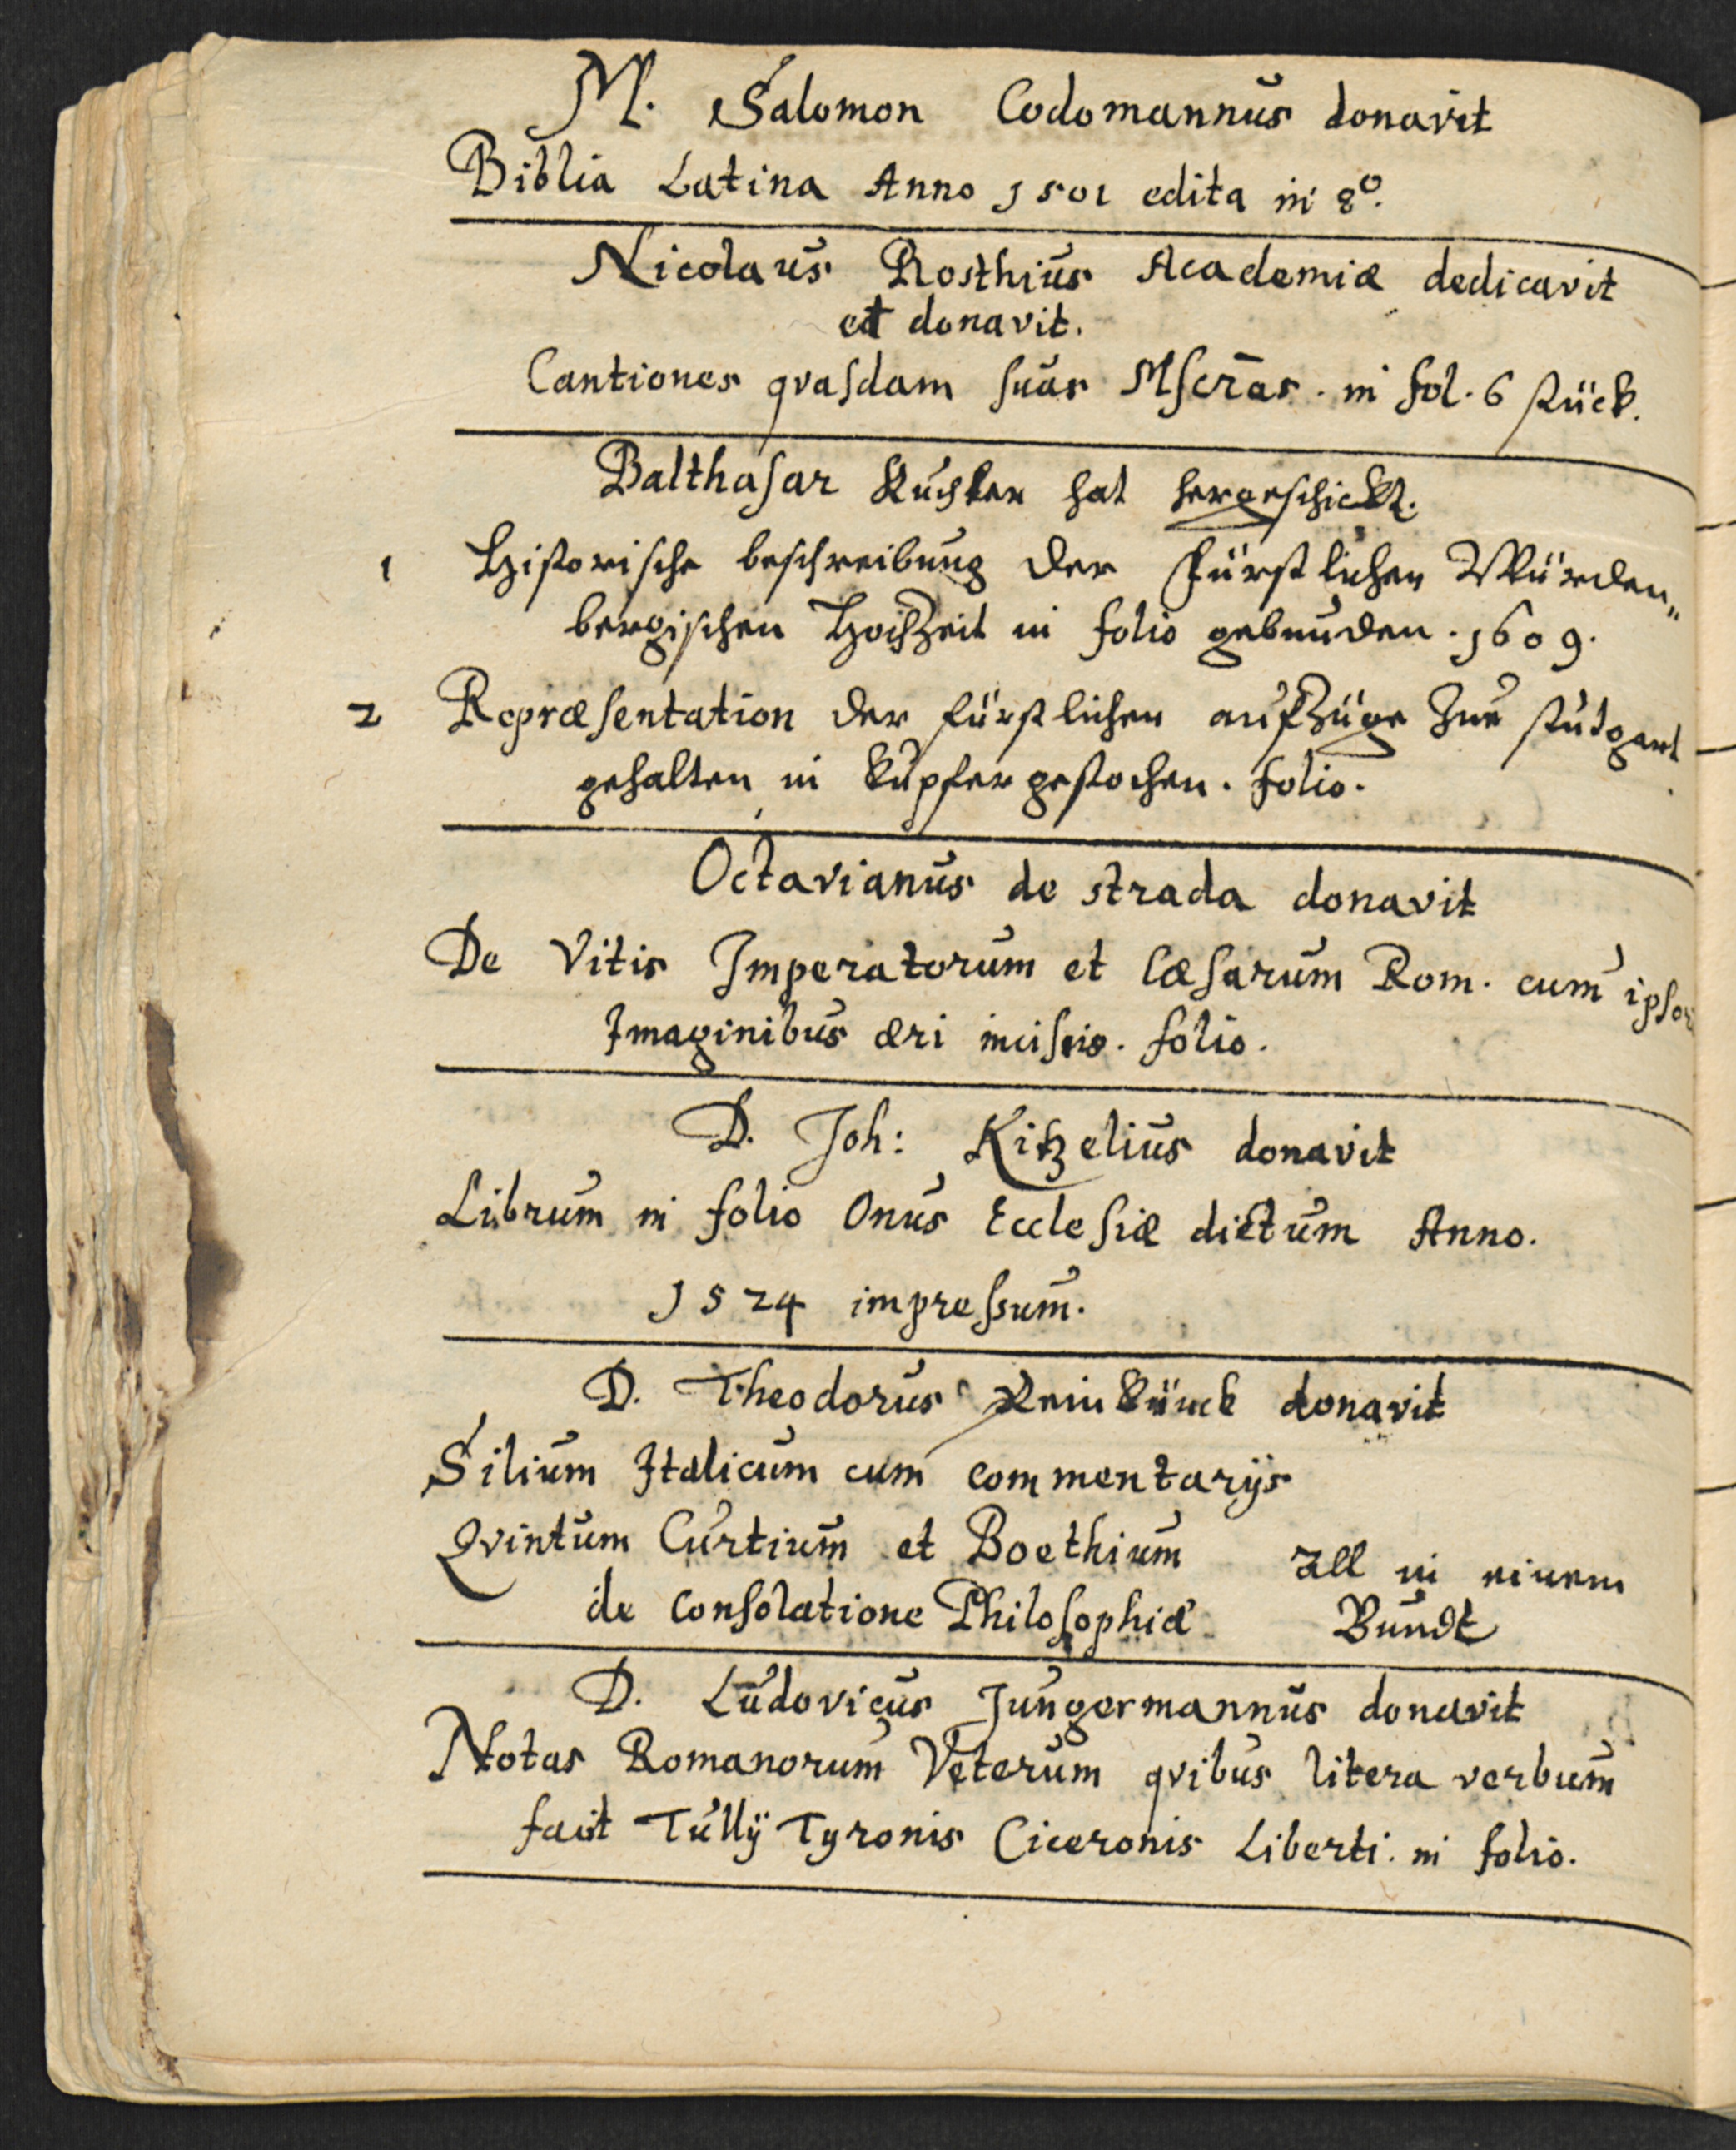 M. Salomon Codomannus donavit
Biblia Latina Anno 1501 edita in 8º.
Nicolaus Rosthius Academiæ dedicavit
et donavit.
Cantiones qvasdam suas Mscras. in fol. 6 stück.
Balthasar Kuchler hat hergeschickt.
1 Historische beschreibung der Fürstlichen Würden„
bergischen Hochzeit in folio gebunden. 1609.
2 Repræsentation der fürstlichen aufzüge zue stutgart
gehalten in kupfer gestochen. folio.
Octavianus de strada donavit
De Vitis Imperatorum et Cæsarum Rom. cum ipsor
Imaginibus æri incisis. folio.
D. Joh: Kitzelius donavit
Librum in folio Onus Ecclesiæ dictum Anno.
1524 impressum.
D. Theodorus Reinkünck donavit
Silium Italicum cum commentarijs
Qvintum Curtium et Boethium all in einem
de Consolatione Philosophiæ Bundt
D. Ludovicus Jungermannus donavit
Notas Romanorum Veterum qvibus litera verbum
facit Tullij Tyronis Ciceronis Liberti. in folio.